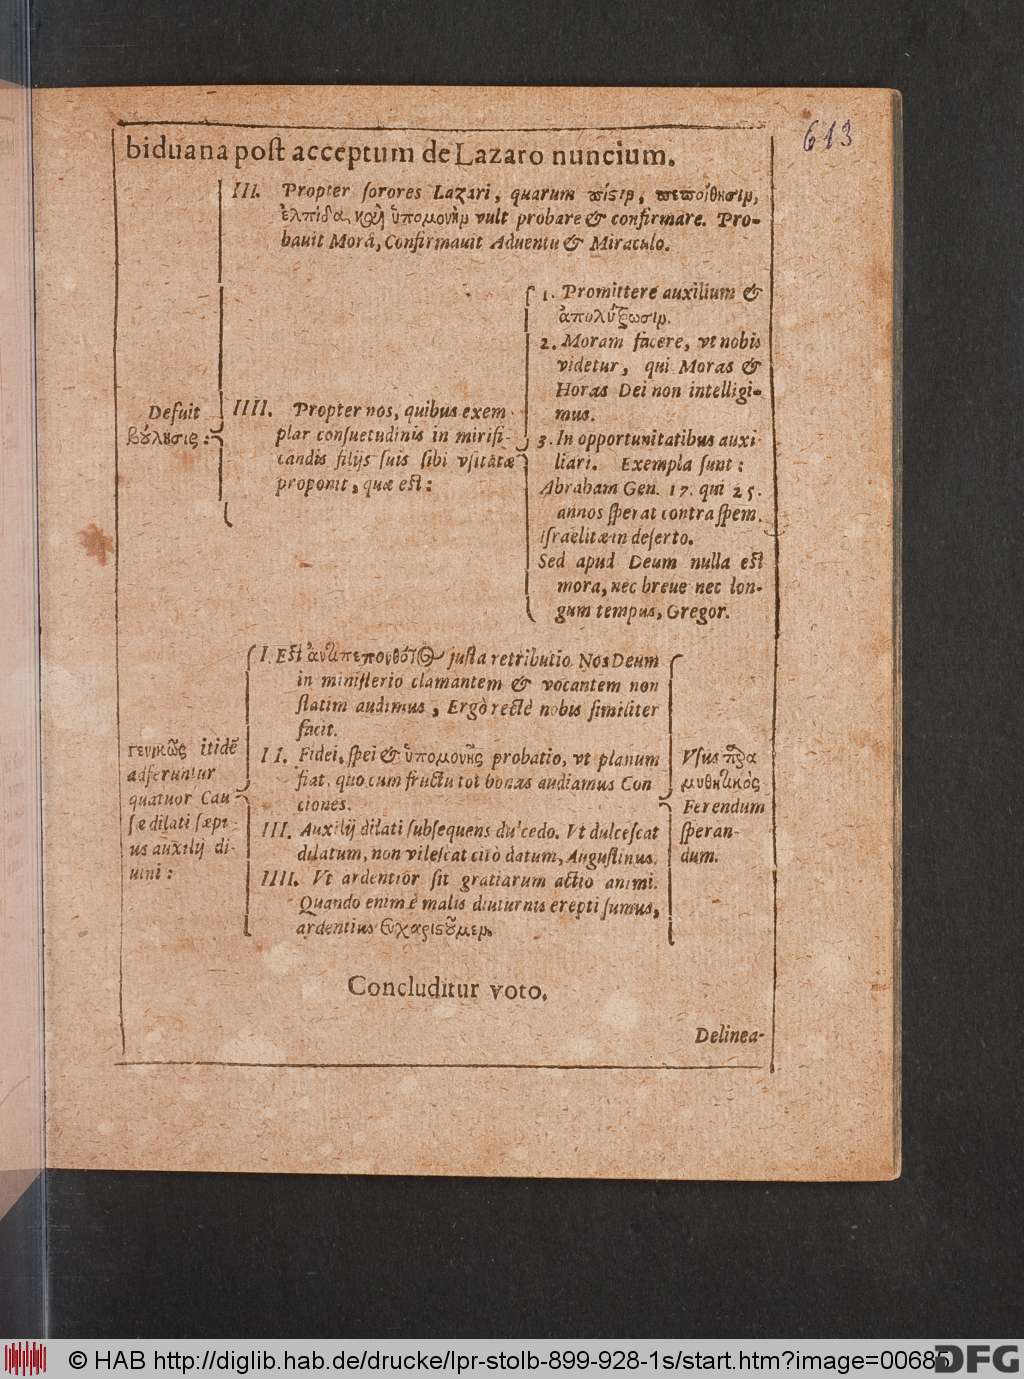 613
biduana post acceptum de Lazaro nuncium.
III. Propter sorores Lazari, quarum πίςιν, πεποίθησιν,
ἐλπίδα, καὶ ὑπομονὴν vult probare & confirmare. Pro-
bauit Morâ, Confirmauit Aduentu & Miraculo.
Defuit
βούλησις:
IIII. Propter nos, quibus exem-
plar consuetudinis in mirifi-
candis filijs suis sibi vsitatæ
proponit, quæ est:
1. Promittere auxilium &
ἀπολύτρωσιν.
2. Moram facere, vt nobis
videtur, qui Moras &
Horas Dei non intelligi-
mus.
3. In opportunitatibus auxi-
liari. Exempla sunt:
Abraham Gen. 17. qui 25.
annos sperat contra spem.
Israelitæ in deserto.
Sed apud Deum nulla est
mora, nec breue nec lon-
gum tempus, Gregor.
γενικῶς itidẽ
adferuntur
quatuor Cau-
sæ dilati sæpi-
us auxilij di-
uini:
I. Est ἀντιπεπονθότος justa retributio. Nos Deum
in ministerio clamantem & vocantem non
statim audimus, Ergò rectè nobis similiter
facit.
II. Fidei, spei & ὑπομονῆς probatio, vt planum
fiat, quo cum fructu tot bonas audiamus Con
ciones.
III. Auxilij dilati subsequens dulcedo. Vt dulcescat
dilatum, non vilescat citò datum, Augustinus.
IIII. Vt ardentior sit gratiarum actio animi.
Quando enim è malis diuturnis erepti sumus,
ardentius εὐχαριςοῦμεν.
Vsus παρα
μυθητικὸς
Ferendum
speran-
dum.
Concluditur voto.
Delinea-
© HAB http://diglib.hab.de/drucke/lpr-stolb-899-928-1s/start.htm?image=00685
DFG